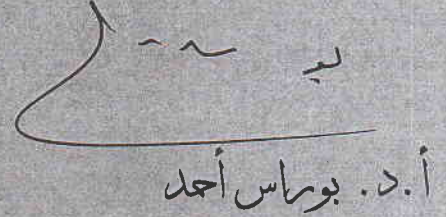 أ.د. بوراس أحمد